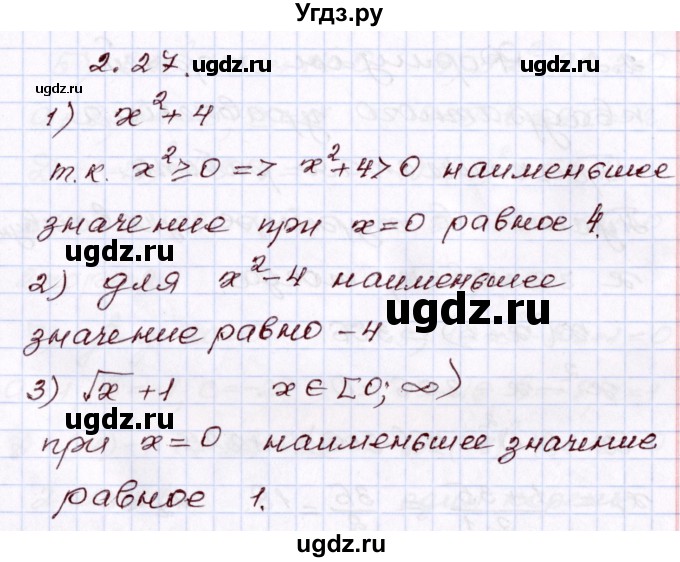 Угдз.ру
2.27. ugdz.ru
ugdz.ru
1) x²+4
т.к. x²≥0 => x²+4>0 наименьшее
значение при x=0 равное 4.
ugdz.ru
2) для x²-4 наименьшее
ugdz.ru
значение равно -4
3) √x +1 x∈[0;∞)
ugdz.ru
при x=0 наименьшее значение
равное 1.
ugdz.ru
ugdz.ru